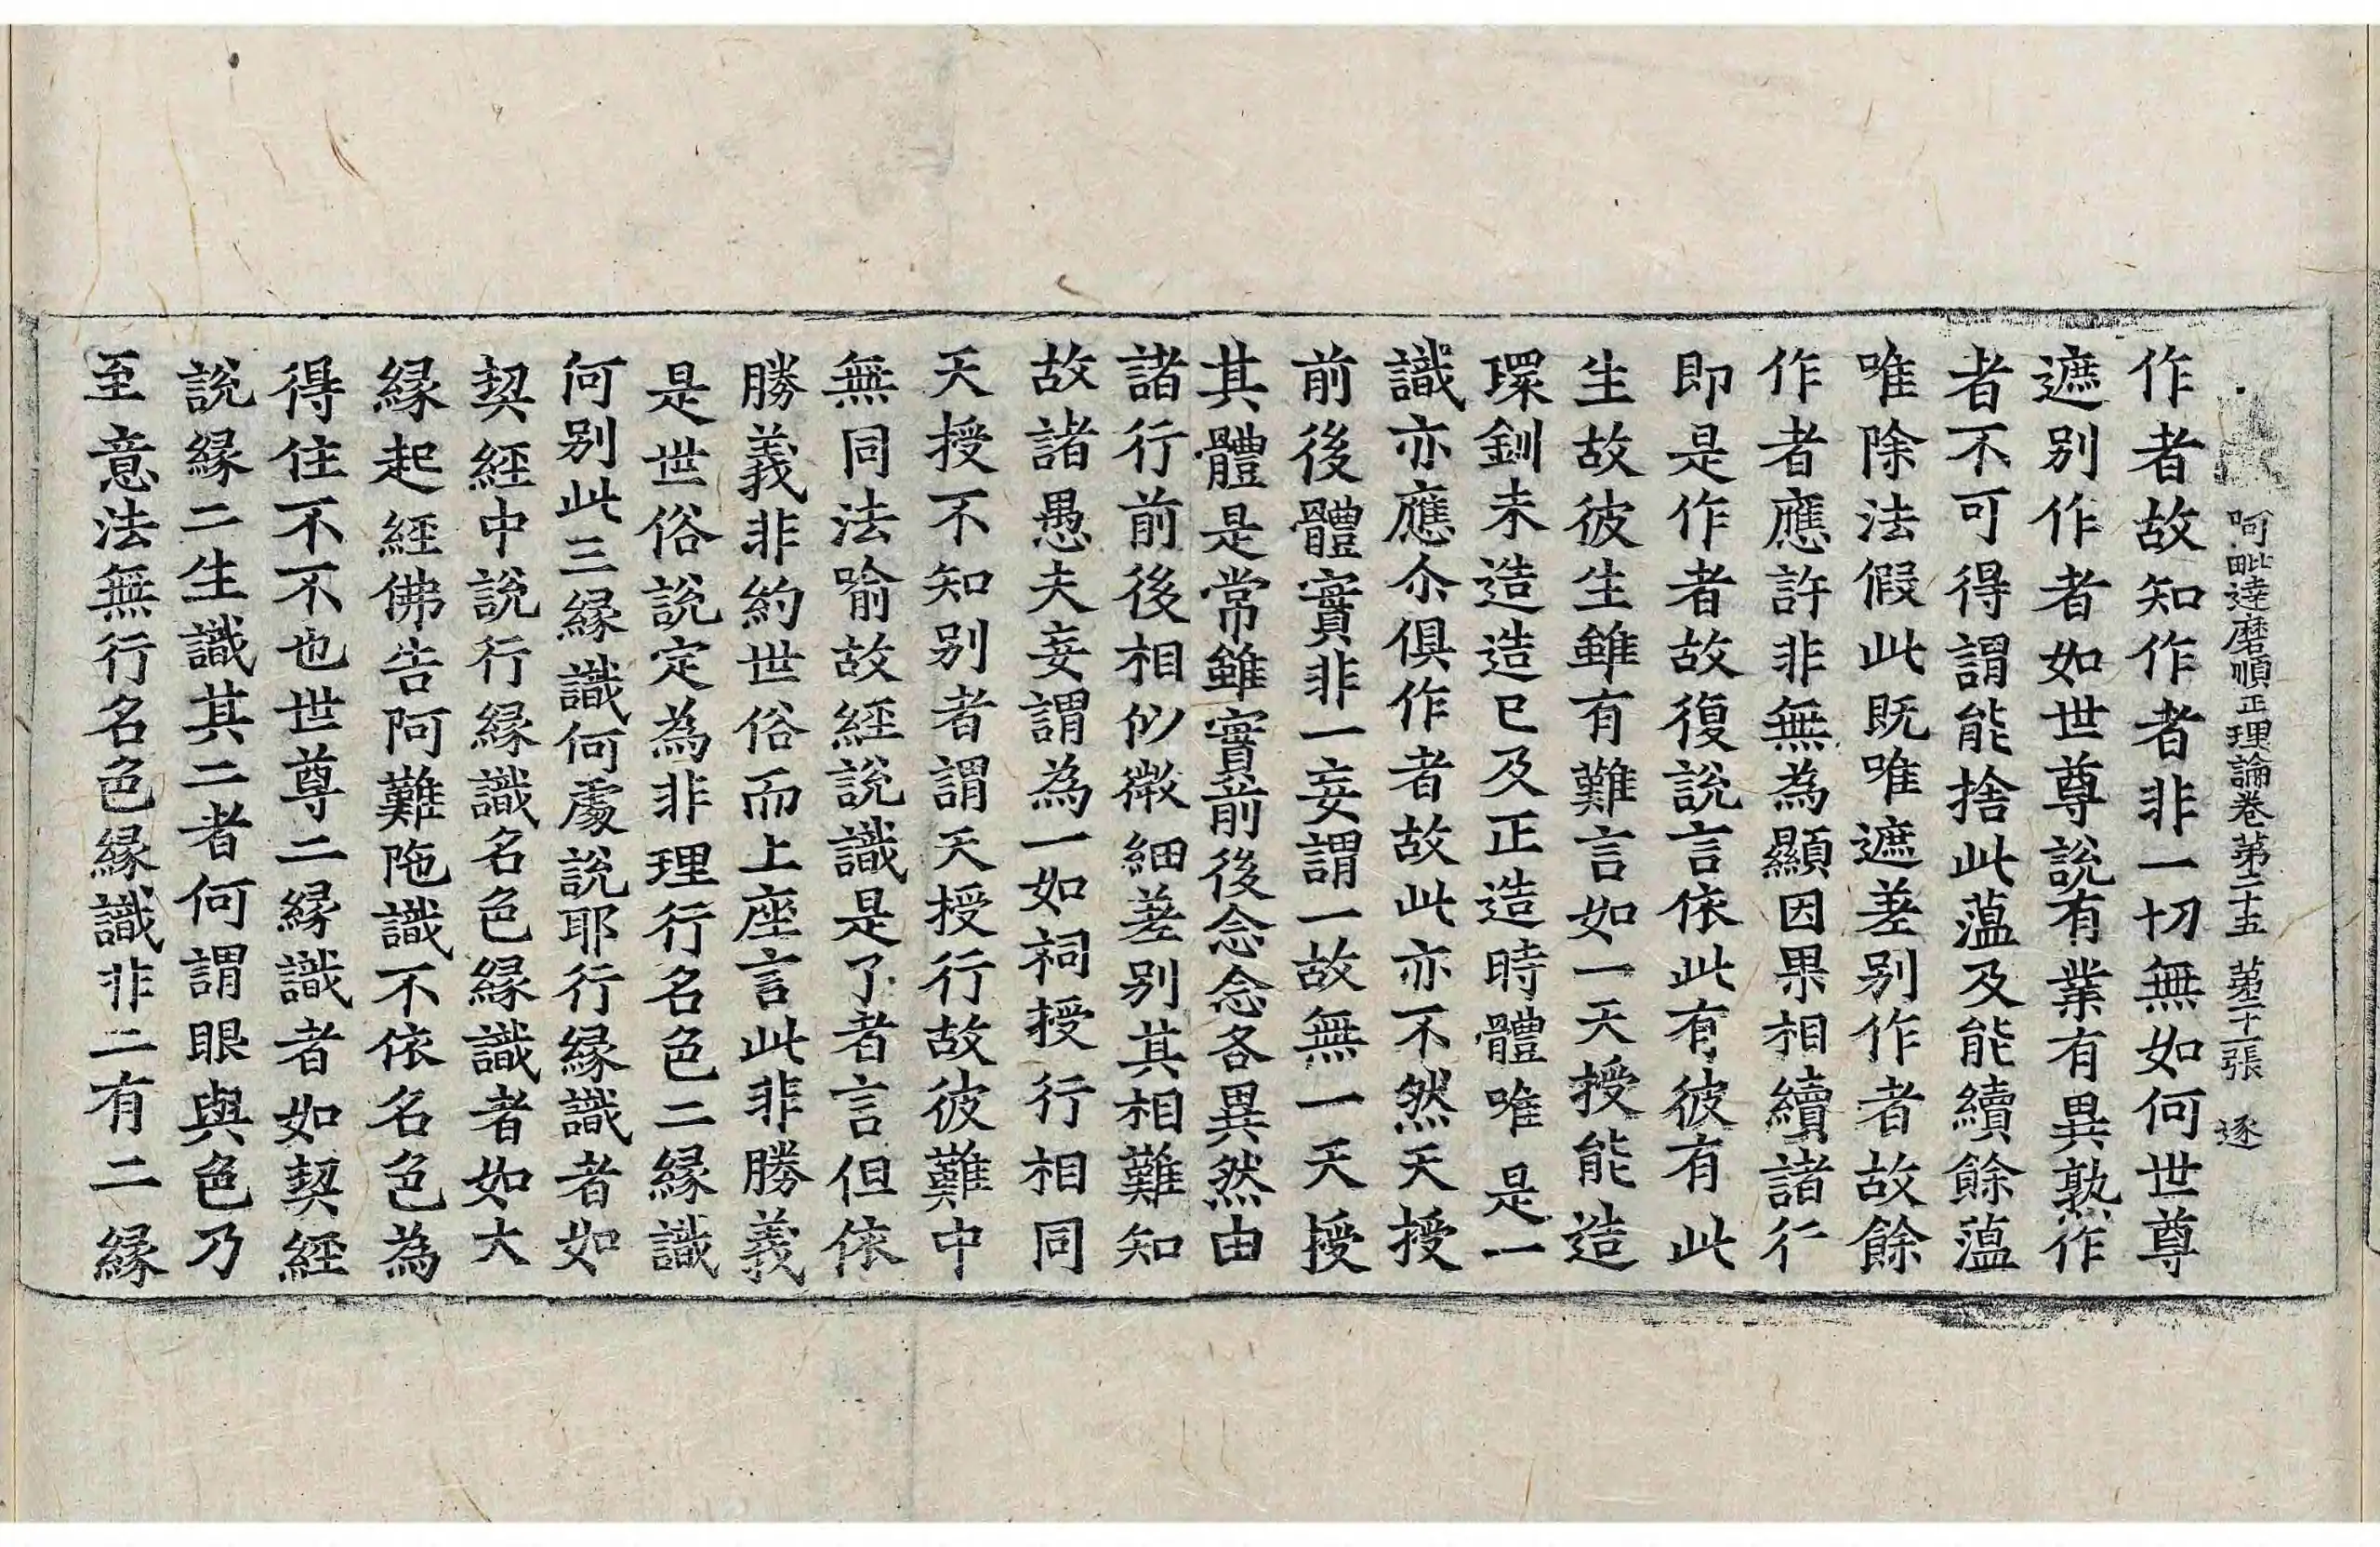 阿毗達磨順正理論卷第二十五 第二十一張 逐
作者故知作者非一切無如何世尊
遮别作者如世尊說有業有異熟作
者不可得謂能捨此蕰及能續餘蕰
唯除法假此既唯遮差别作者故餘
作者應許非無為顯因果相續諸行
即是作者故復說言依此有彼有此
生故彼生雖有難言如一天授能造
環釧未造造已及正造時體唯是一
識亦應尒俱作者故此亦不然天授
前後體實非一妄謂一故無一天授
其體是常雖實前後念念各異然由
諸行前後相似微細差别其相難知
故諸愚夫妄謂為一如祠授行相同
天授不知别者謂天授行故彼難中
無同法喻故經說識是了者言但依
勝義非約世俗而上座言此非勝義
是世俗說定為非理行名色二緣識
何别此三緣識何處說耶行緣識者如
契經中說行緣識名色緣識者如大
緣起經佛告阿難陁識不依名色為
得住不不也世尊二緣識者如契經
說緣二生識其二者何謂眼與色乃
至意法無行名色緣識非二有二緣